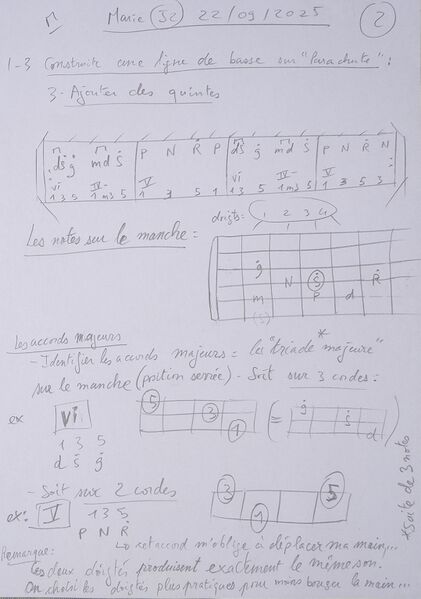 Marie (J2) 22/09/2025 (2)
1-3 Construire une ligne de basse sur "Parachute" :
3 - Ajouter des quintes
dš ġ mď Ṡ P N Ṙ P dš ġ md Ṡ P N Ṙ N
vi IV V vi IV V
1 3 5 1 m3 5 1 3 5 1 1 3 5 1 m3 5 1 3 5 3
doigts : 1 2 3 4
Les notes sur le manche :
ġ ṡ
m N P d Ṙ
(s)
Les accords majeurs
- Identifier les accords majeurs = les "triade* majeure"
sur le manche (position serrée) - Soit sur 3 cordes :
ex VI 5 3 1 (= ġ ṡ d)
1 3 5
d ṡ ġ
- Soit sur 2 cordes 3 1 5
ex : V 1 3 5
P N Ṙ
↳ cet accord m'oblige à déplacer ma main...
Remarque :
Les deux doigtés produisent exactement le même son.
On choisi les doigtés plus pratiques pour moins bouger la main...
* Suite de 3 notes